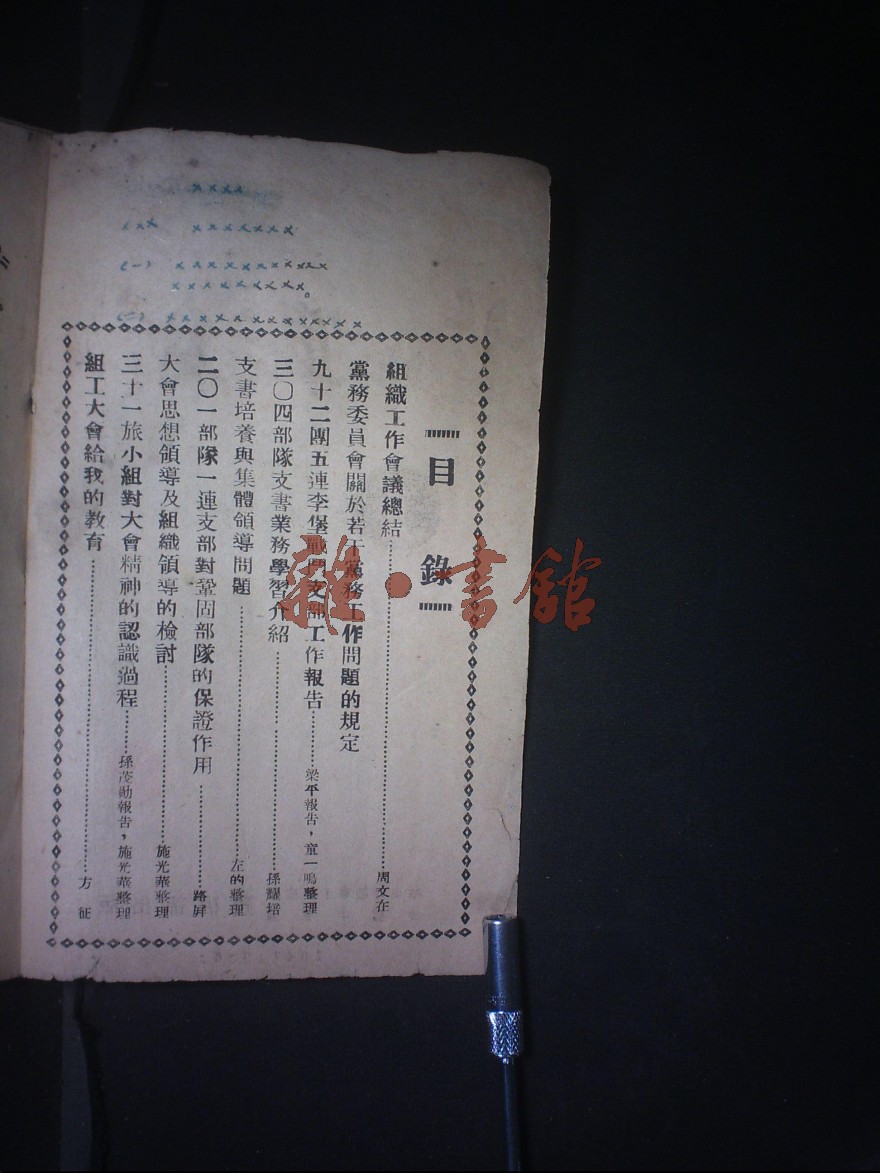 目錄
組織工作會議總結………周文在
黨務委員會關於若干黨務工作問題的規定
九十二團五連李堡戰鬥支部工作報告………梁平報告，童一鳴整理
三〇四部隊支書業務學習介紹………孫耀培
支書培養與集體領導問題………左的整理
二〇一部隊一連支部對鞏固部隊的保證作用………路屏
大會思想領導及組織領導的檢討………施光華整理
三十一旅小組對大會精神的認識過程………孫茂勛報告，施光華整理
組工大會給我的教育………方征
××××
××× ×××××××
(一) ××××××××××××
×××××××××。
(二) ×××××××××××××
雜·書館